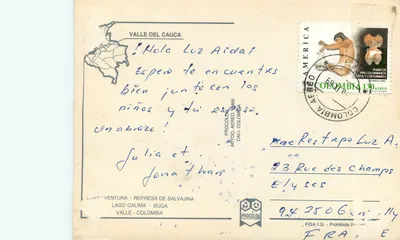 VALLE DEL CAUCA
¡Hola Luz Aida!
Espero te encuentres
bien junto con los
niños y tu esposo.
un abrazo!
Julia et
Jonathan
VENTURA - REPRESA DE SALVAJINA
LAGO CALIMA - BUGA
VALLE - COLOMBIA
PROCOLOR
CALI - COLOMBIA
AMERICA
COLOMBIA 130
COLOMBIA AEREO
Mme Restrepo Luz A.
23 Rue des champs
Elyses
94250 Gentilly
FRA E